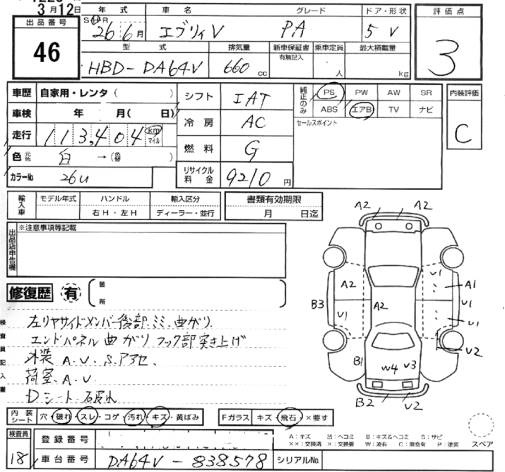 3月12日
出品番号 46
年式 26年6月
車名 エブリィV
グレード PA
ドア・形状 5V
評価点 3
型式 HBD-DA64V
排気量 660 cc
新車保証書 有無記入
乗車定員 人
最大積載量 kg
車歴 自家用・レンタ( )
車検 年 月( 日)
走行 113,404 km マイル
色 白 →
カラーNo 26U
シフト IAT
冷房 AC
燃料 G
リサイクル料金 9210円
純正のみ PS PW AW SR
ABS エアB TV ナビ
セールスポイント
内装評価 C
輸入車 モデル年式 ハンドル 右H・左H 輸入区分 ディーラー・並行
書類有効期限 月 日迄
※注意事項等記載
修復歴 有 箇所
検査員記入書
左リヤサイドメンバー後部ミミ曲がり
エンドパネル曲がり フック部突き上げ
外装A.U.S.アセ.
荷室A.U
Dシート
A2 A2
A2 A2 U1 A1
B3 U1 U1
B1 W4 U3 U2
B2 U2
内装シート 穴・破れ・スレ・コゲ・汚れ・キズ・黄ばみ
Fガラス キズ・飛石・×要す
スペア
検査員 18
登録番号
車台番号 DA64V-838578
シリアルNo